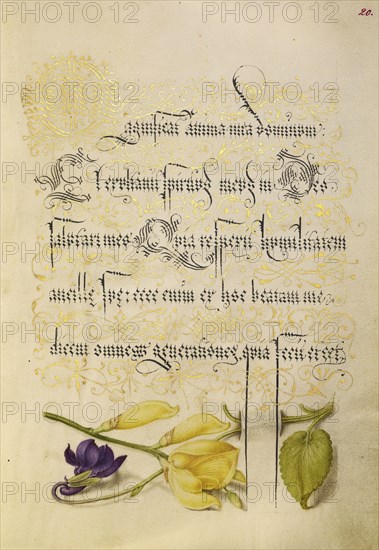 20.
agnificat anima mea dominum:
Et exultavit spiritus meus in Deo
salutari meo Quia respexit humilitatem
ancille sue: ecce enim ex hoc beatam me
dicent omnes generationes, quia fecit
PHOTO12